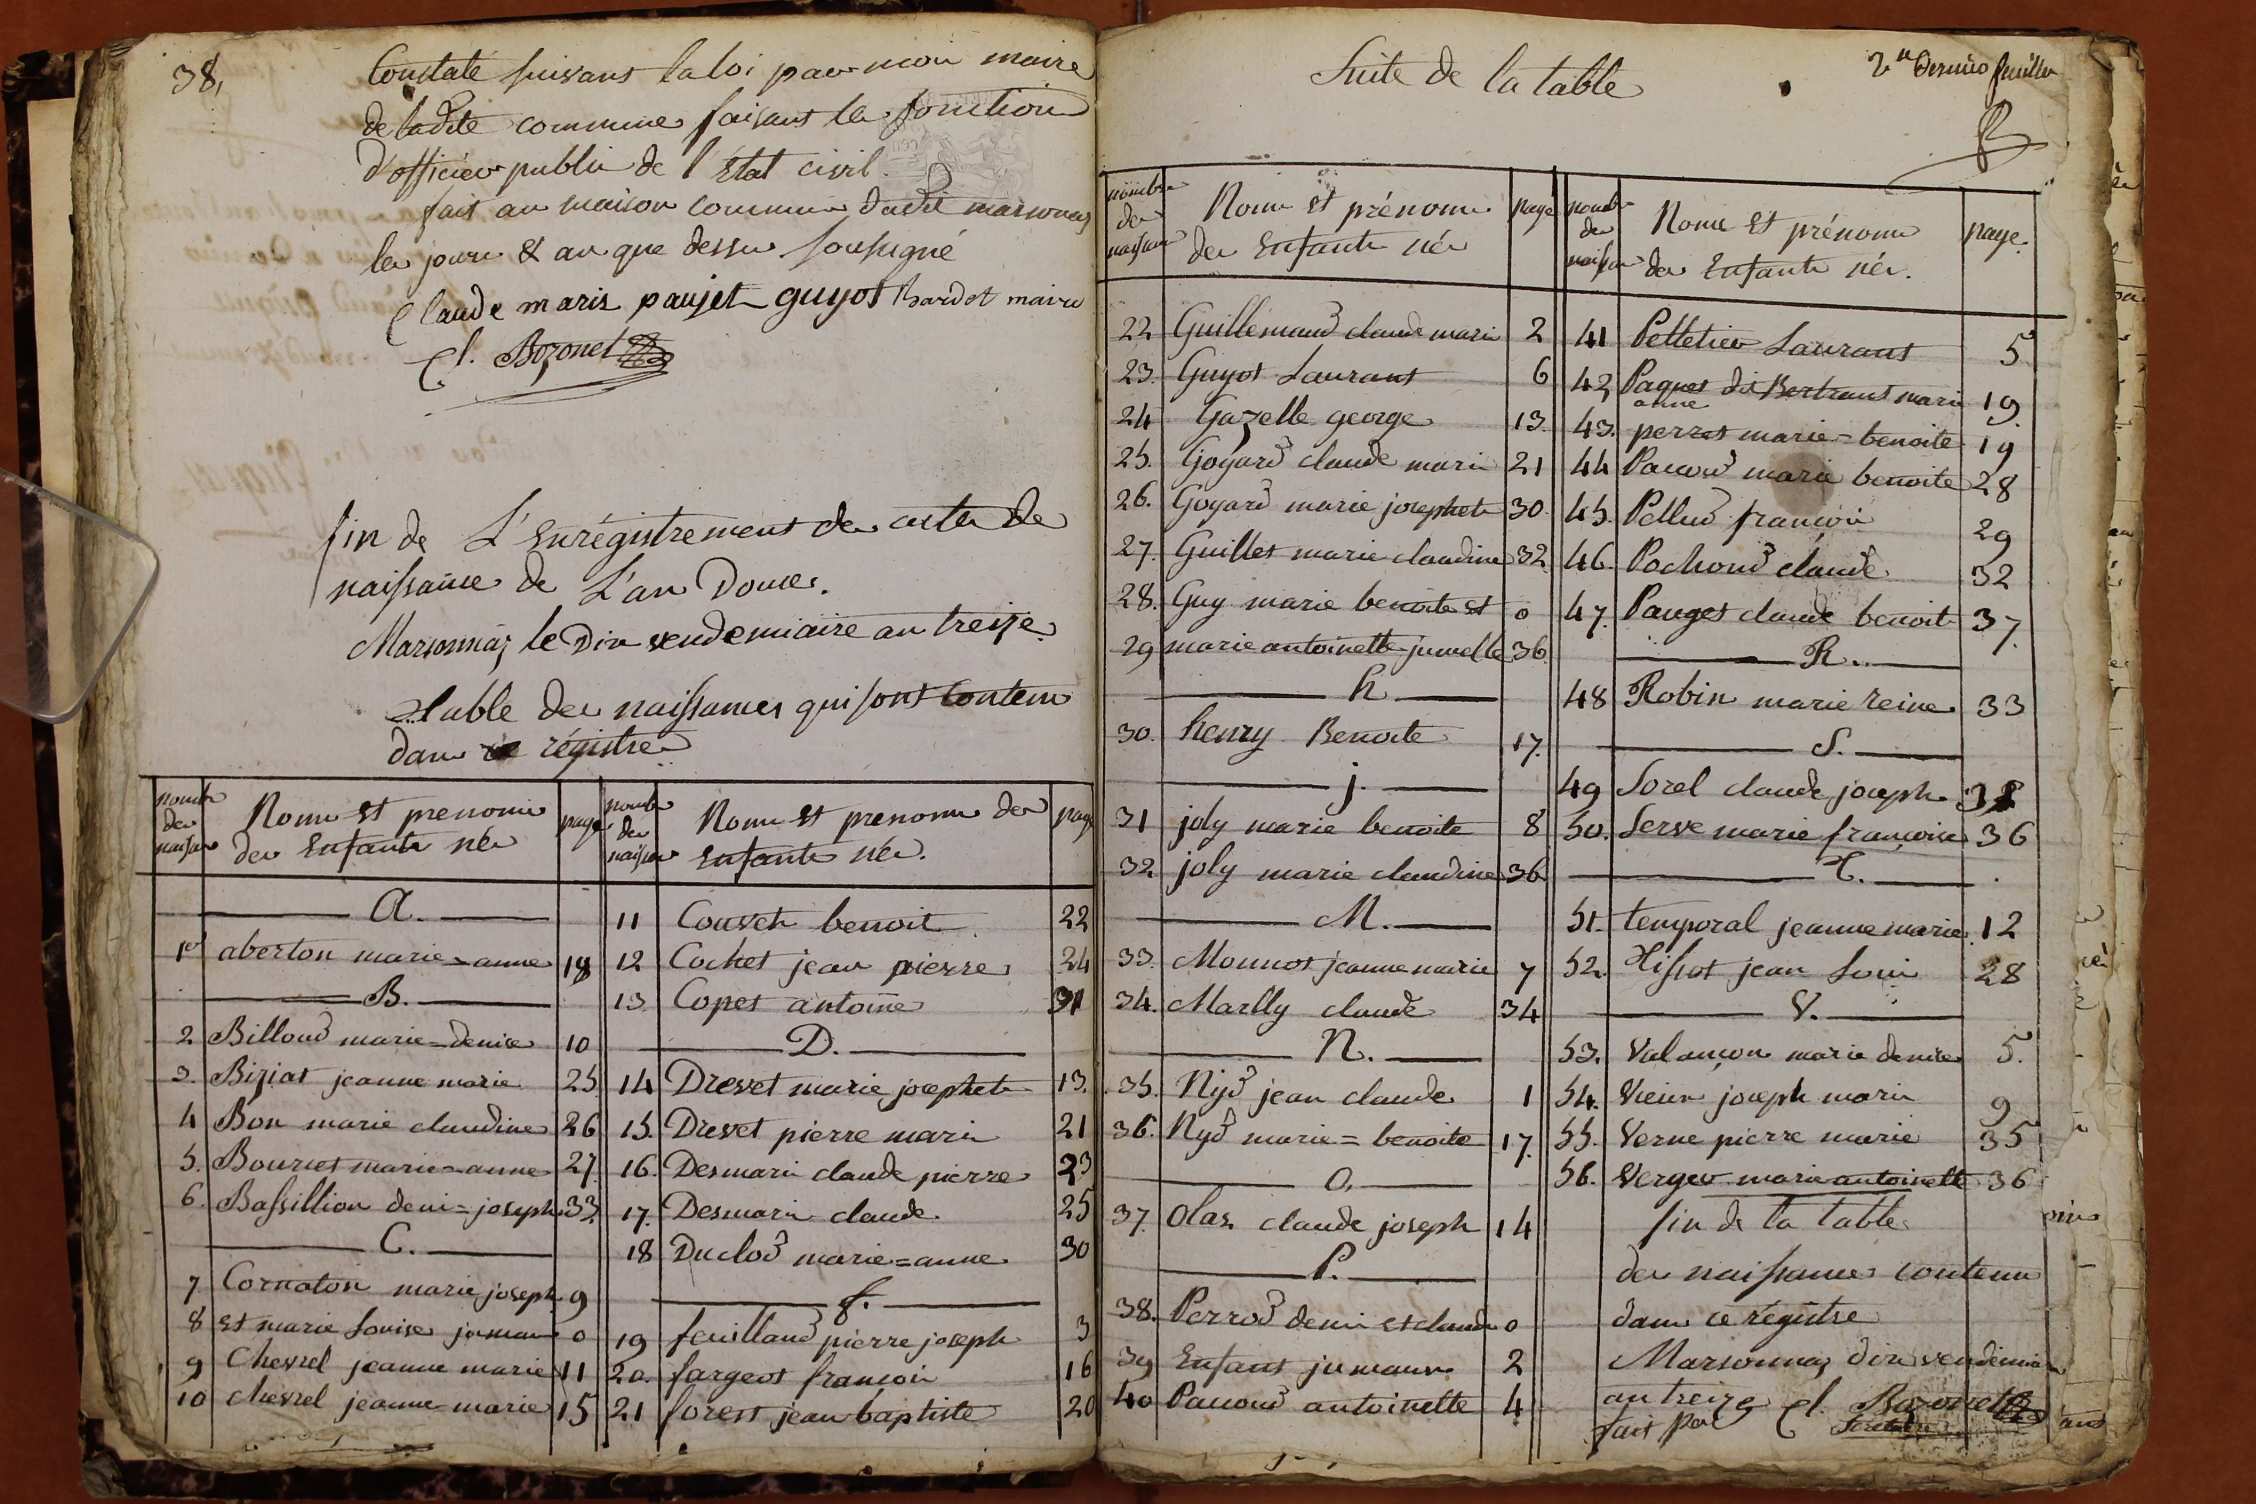 38,
Constaté suivant la loi par moi maire
de ladite commune faisant la fonction
d'officier public de l'état civil.
fait au maison commune dudit marsonnas
les jours & an que dessu soussigné
Claude maris paujet guyot hardet maire
Cl. Bozonet
fin de L'Enrégistrement des actes de
naissance de L'an Douze.
Marsonnaz le Dix vendemiaire an treize
Table des naissances qui sont Contenu
dans ce régistre
nombre des naissance | Noms et prenoms des Enfants nés | page | nombre des naissance | Noms et prenoms des Enfants nés. | page
A. | 11 Couvet benoit 22
1er aberton marie=anne 18 | 12 Cochet jean pierre 24
B. | 13 Copet antoine 31
2 Billoud marie=denise 10 | D.
3. Biziat jeanne marie 25 | 14 Drevet marie josephete 13.
4 Bon marie claudine 26 | 15. Drevet pierre marie 21
5. Bourcet marie=anne 27 | 16. Desmaris claude pierre 23
6. Bassillion deni=joseph 33 | 17. Desmaris claude 25
C. | 18 Duclod marie=anne 30
7 Cornaton marie joseph 9 | f.
8 et marie Louise jumaux 0 | 19 feuilland pierre joseph 3
9 Chevrel jeanne marie 11 | 20. fargeot francois 16
10 chevrel jeanne marie 15 | 21 forest jean baptiste 20
Suite de la table
2e Dernier feuillet
nombre des naissance | Noms et prénoms des Enfants nés | page | nombre des naissance | Noms et prénoms des Enfants nés. | page.
22 Guillemaud claude marie 2 | 41 Pelletier Laurant 5
23. Guyot Laurant 6 | 42 Paquet dit Bertrand marie anne 19
24 Gazelle george 13. | 43. perret marie=benoite 19
25. Goyard claude marie 21 | 44 Pacoud marie benoite 28
26. Goyard marie josephete 30. | 45. Pellud françois 29
27. Guillet marie claudine 32. | 46. Pochoud claude 32
28. Guy marie benoite et 0 | 47. Pauget claude benoit 37.
29 marie antoinette jumelle 36. | R.
h | 48 Robin marie reine 33
30. henry Benoite 17. | S.
j. | 49 Sorel claude joseph 35
31 joly marie benoite 8 | 50. Serve marie françoise 36
32. joly marie claudine 36. | T.
M. | 51. temporal jeanne marie 12
33. Monnot jeanne marie 7 | 52. Tissot jean Louis 28
34. Marlly claude 34 | V.
N. | 53. Valançon marie denise 5.
35. Nyd jean claude 1 | 54. Vieux joseph marie 9
36. Nyd marie=benoite 17. | 55. Verne pierre marie 35
O. | 56. Verger marie antoinette 36
37. Olas claude joseph 14 | fin de la table
P. | des naissances contenu
38. Perrod denis et claude 0 | dans ce régistre
39 Enfans jumeaux 2 | Marsonnaz dix vendémiaire
40 Pacoud antoinette 4 | an treize Cl. Bozonet
fait par Secretaire